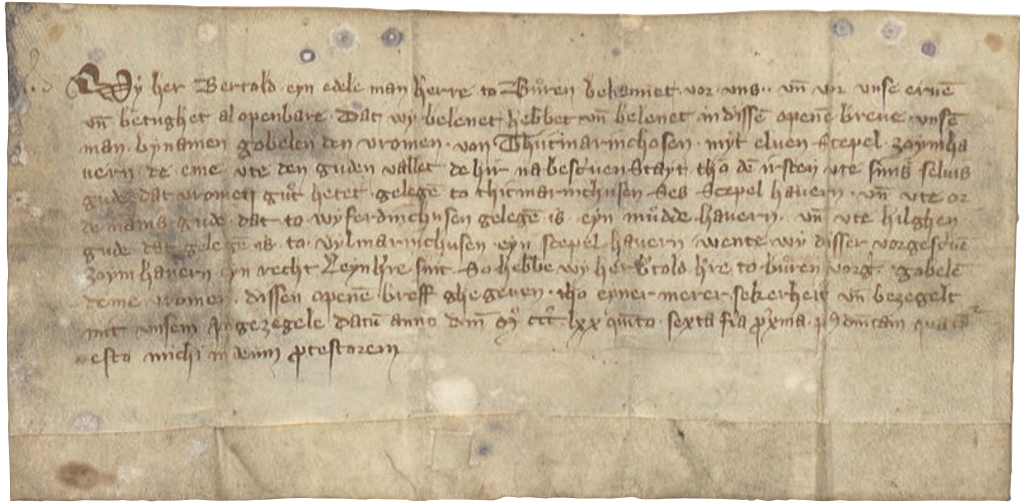 Wy her Bertold eyn edele man herre to Bůren bekennet vor vns · vn̄ vor vnse eruē
vn̄ betughet al openbare · Dat wy belenet hebbet vn̄ belenet in dissē openē breue vnsē
man · by namen gobelen den vromen · von Thitmarinchosen · myt eluen Scepel zoymha
uern · de eme vte den guden vallet de hir na bescreuen Stayt · tho dē irsten vte sinis selues
gude dat vromen gůt hetet · gelegē to thitmarinchusen Ses Scepel hauern · vn̄ vte
gude · dat to wyferdinchusen gelegē is · eyn műdde hauern · vn̄ vte hilghen
gude dat gelegē is · to vylmarinchusen eyn scepel hauern wente wy disser vorgescrē
zoym hauern eyn recht Leynhr̄e sint · So hebbe wy her Btold hr̄e to bůren vorḡ · gobelē
deme vromen · dissen openē breff ghegeuen · tho eyner merer sekerheit vn̄ bezegelt
mit vnsem Ingezegele datū anno dnī mͦ cccͦ lxx qͥnto · sexta fia px̄ma · dnīcam qua
esto michi in deum ꝓtectorem